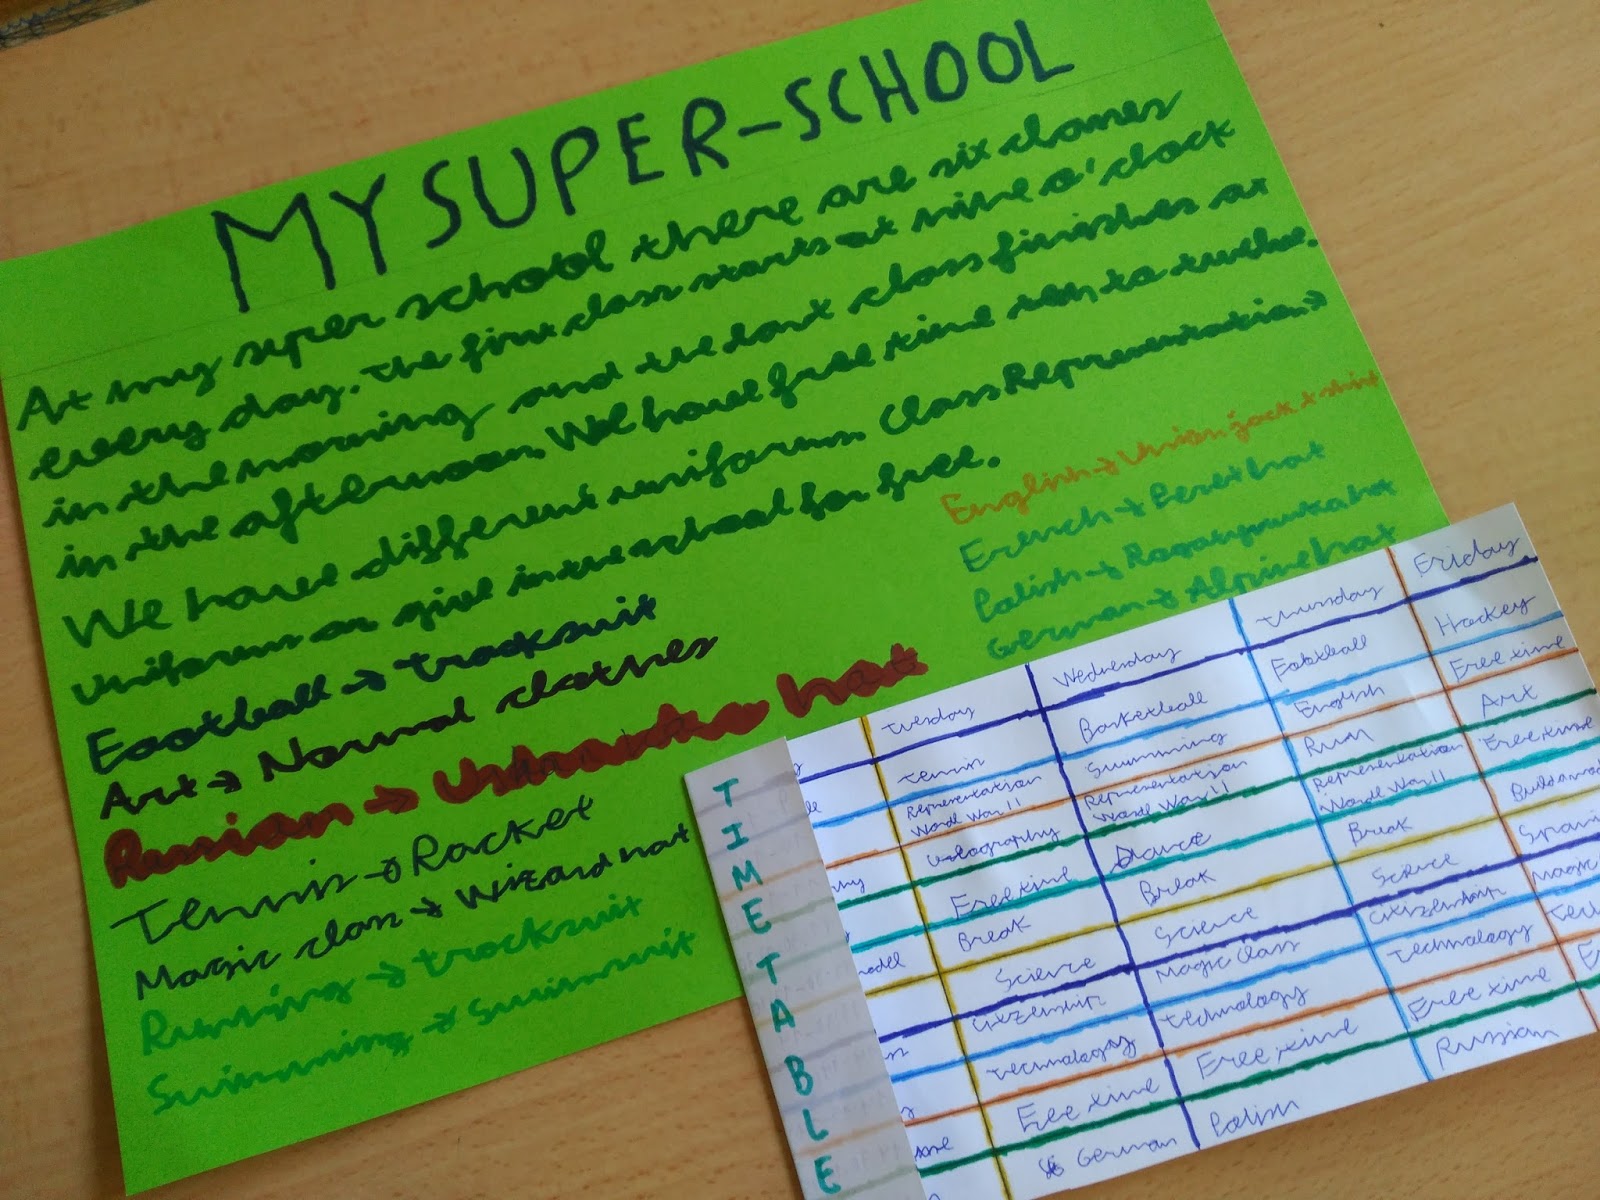 MY SUPER-SCHOOL
At my super school there are six classes
every day. The first class starts at nine o'clock
in the morning and the last class finishes at
in the afternoon. We have free time ten to twelve.
We have different uniforms. Class Representation →
Uniforms on give in the school for free.
Football → tracksuit
Art → Normal clothes
Russian → Ushanka hat
Tennis → Racket
Magic class → Wizard hat
Running → tracksuit
Swimming → swimsuit
English → Union jack t shirt
French → Beret hat
Polish → hat
German → Alpine hat
TIMETABLE
Tuesday Wednesday Thursday Friday
Tennis Basketball Football Hockey
Representation Word War II Swimming English Free time
Representation Word War II Run Art
Dance Representation Word War II Free time
Free time Break Break
Break Science Science
Science Magic Class Citizenship Magic
Citizenship Technology Technology
Technology Free time Free time
Free time Polish Russian
German